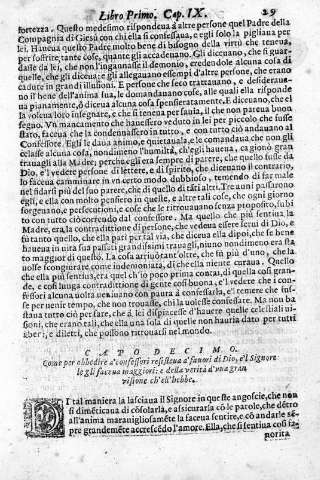 Libro Primo. Cap. IX. 29
fortezza. Questo medesimo rispondeua à altre persone quel Padre della
Compagnia di Giesù con chi ella si confessaua, e egli solo la pigliaua per
lei. Haueua questo Padre molto bene di bisogno della virtù che teneua,
per soffrire tante cose, quante gli accadeuano. Gli diceuano, che si guar-
dasse da lei, che non l'ingannasse il demonio, credendole alcuna cosa di
quelle, che gli diceua: e gli allegauano essempi d'altre persone, che erano
cadute in grandi illusioni. E persone che seco trattauano, e desideraua-
no il bene dell'anima sua, le domandauano cose, alle quali ella risponde
ua pianamente, ò diceua alcuna cosa spensieratamente. E diceuano, che ella
voleua loro insegnare, e che si teneua per sauia, il che non pareua buon
segno. Un mancamento che hauessero veduto in lei per piccolo che fusse
stato, faceua che la condennassero in tutto, e con tutto ciò andauano al
Confessore. Egli le daua animo, e quietauala, e le comandaua che non gli
celasse alcuna cosa, nondimeno l'humiltà, ch'egli haueua, cagionò gran
trauagli alla Madre; perche egli era sempre di parere, che quello fusse da
Dio, e'l vedere persone di lettere, e di spirito, che diceuano il contrario,
lo faceua camminare in vn certo modo dubbioso, e temendo di far male
nel fidarsi più del suo parere, che di quello di tāti altri. Tre anni passarono
egli, e ella con molto pensiero in queste, e altre tali cose, che ogni giorno
sorgeuano, e persecutioni, e cose che le ritrouauano senza proposito, subi
to con tutto ciò correndo dal confessore. Ma quello che più sentiua la
Madre, era la contraddittione di persone, che vedeua essere serui di Dio, e
fù tanto quello, che ella patì per tal via, che diceua ella dipoi, che se bene
haueua in vita sua passati grandissimi trauagli, niuno nondimeno era sta
to maggior di questo. La cosa arriuò tant'oltre, che fù più d'vno, che la
uolse scongiurare come indemoniata, di che ella niente curaua. Quello
che ella più sentiua, era quel ch'io poco prima contai, di quella così gran-
de, e così lunga contradditione di gente così buona, e'l vedere che i con-
fessori alcuna uolta ueniuano cōn paura à confessarla, e'l temere che fus-
se per uenire tempo, che non trouasse, chi la uolesse confessare. Ma non ba
staua tutto ciò per fare, che à lei dispiacesse d'hauere quelle celestiali ui-
sioni, che erano tali, che ella una sola di quelle non hauria dato per tutti
i beri, e diletti, che possono ritrouarsi nel mondo.
CAPO DECIMO.
Come per obbedire a' confessori resisteua a' fauori di Dio, e'l Signore
le gli faceua maggiori: e della verità d'una gran
visione ch'ell'hebbe.
DI tal maniera la lasciaua il Signore in queste angoscie, che non
si dimēticaua di cōsolarla, e assicurarla cō le parole, che dētro
all'anima marauigliosamēte la faceua sentire, e cō andarle sē-
pre grandemēte accrescēdo l'amore. Ella, che si sentiua così fa-
uorita